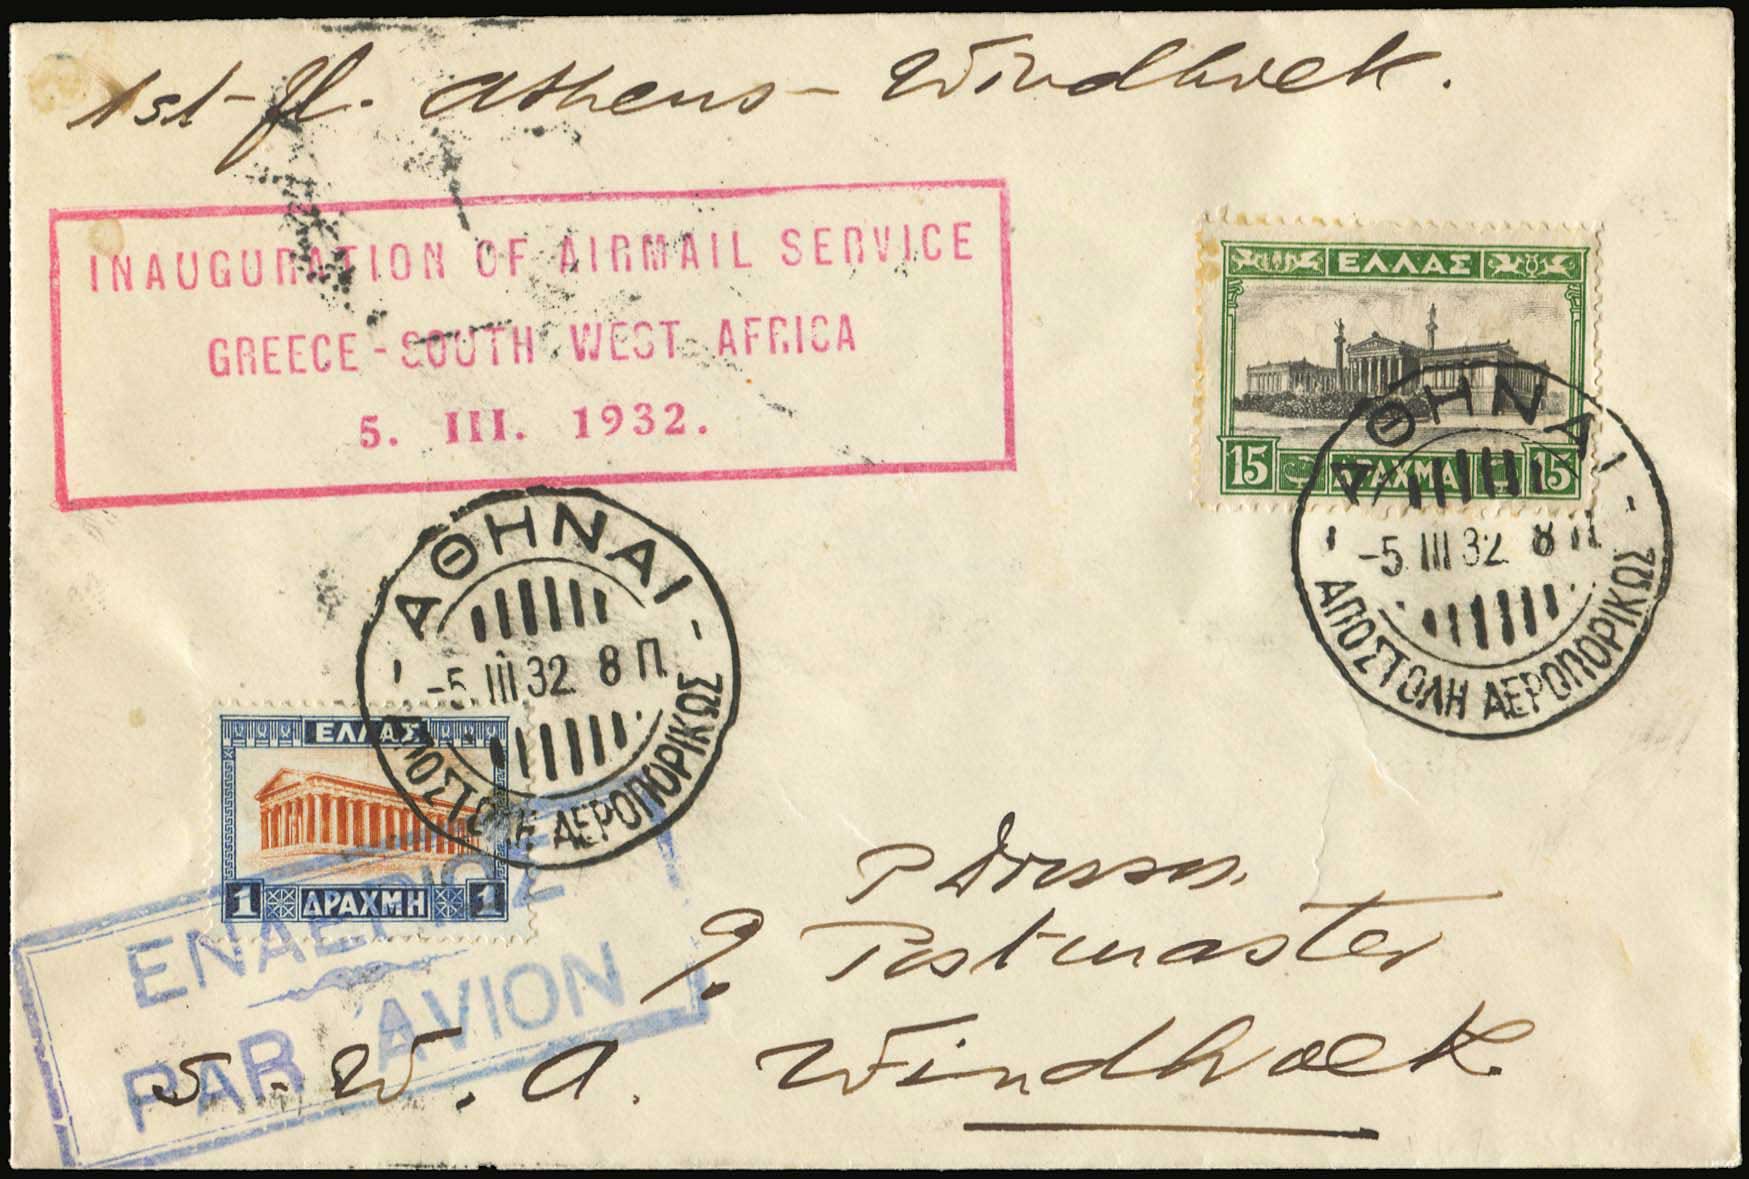 1st-fl. Athens - Windhoek.
INAUGURATION OF AIRMAIL SERVICE
GREECE - SOUTH WEST AFRICA
5. III. 1932.
ΕΛΛΑΣ
15 ΔΡΑΧΜΑΙ 15
ΑΘΗΝΑΙ
-5 III 32 8 Π
ΑΠΟΣΤΟΛΗ ΑΕΡΟΠΟΡΙΚΩΣ
ΑΘΗΝΑΙ
-5 III 32 8 Π
ΑΠΟΣΤΟΛΗ ΑΕΡΟΠΟΡΙΚΩΣ
ΕΛΛΑΣ
1 ΔΡΑΧΜΗ 1
ΕΝΑΕΡΙΩΣ
PAR AVION
P
Postmaster
S. W. A. Windhoek